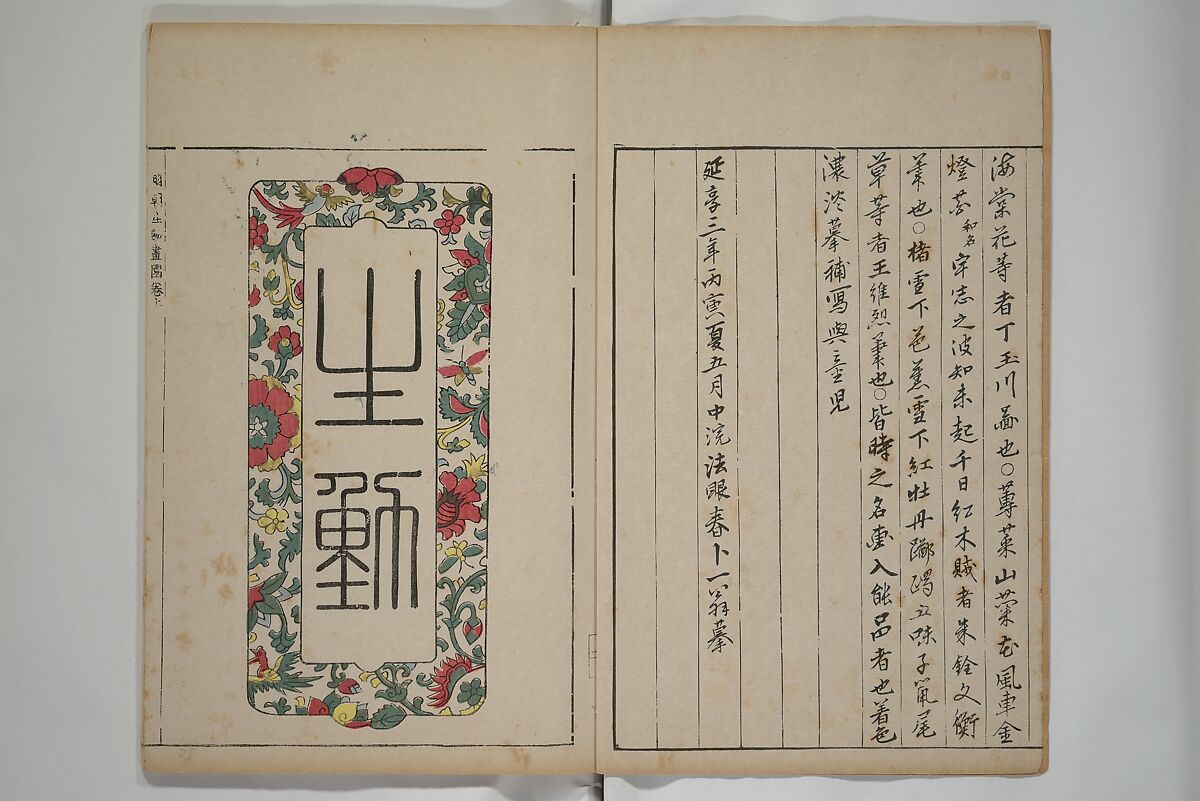 海棠花等者丁玉川畵也○蓴菜山葉花風車金
燈花和名宇志之波知未起千日紅木賊者朱銓文衡
筆也○楮雪下芭蕉雪下紅牡丹躑躅五味子鼠尾
草等者王維烈筆也○皆時之名畫入能品者也着色
濃淡摹補寫與童児
延享三年丙寅夏五月中浣法眼春卜一翁摹
生動
明朝生動畫園卷上